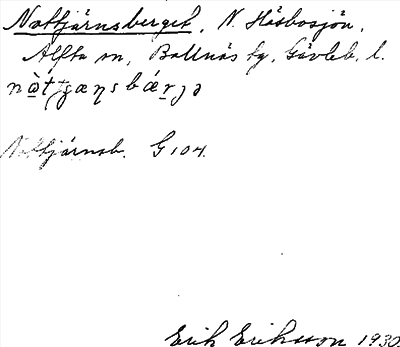 Nottjärnsberget, N. Håsbosjön,
Alfta sn, Bollnäs tg, Gävleb. l.
nòt ̯tjæɳsbǽrjə
Nottjärnsb. G 104.
Erik Eriksson 1930.